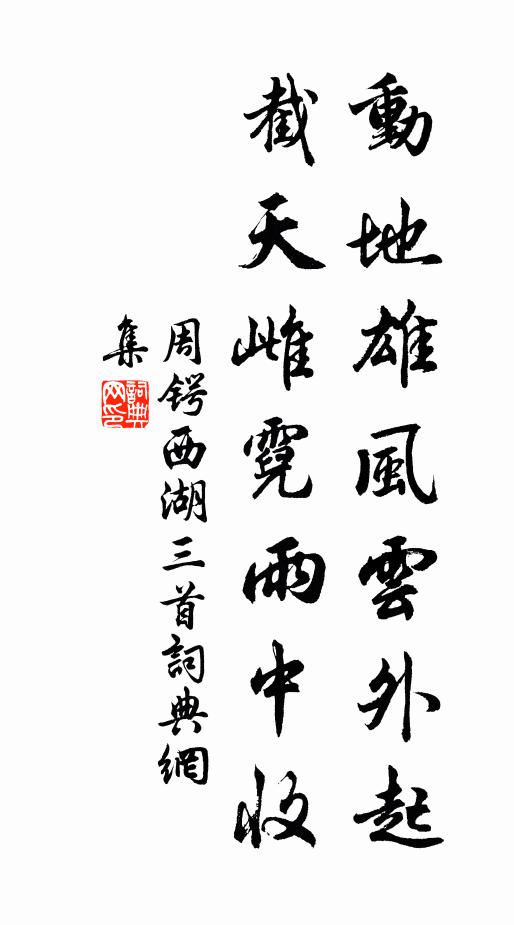 動地雄風雲外起
截天雌霓雨中收
周锷西湖三首詞典網
集
詞典网印